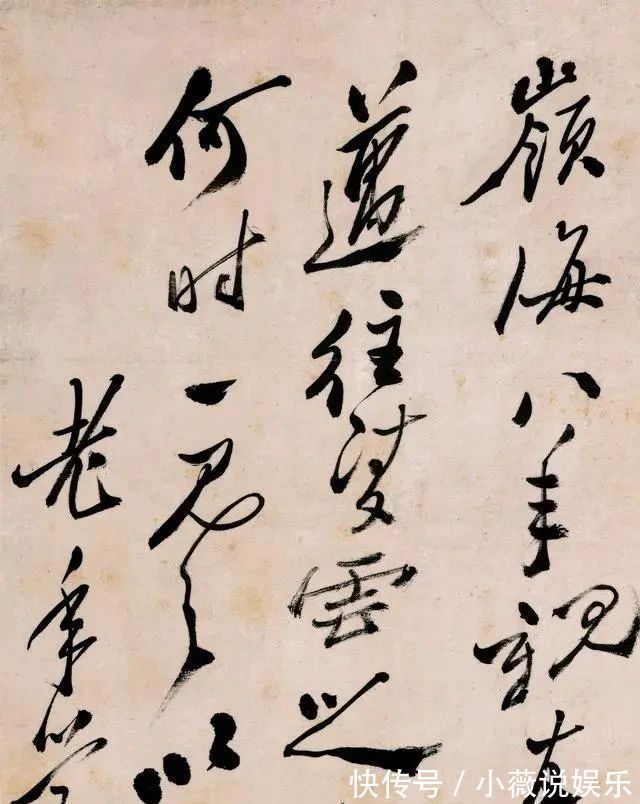 嶺海八年親友
邁往凌雲之
何时一見之以
老年
快传号 / 小薇说娱乐